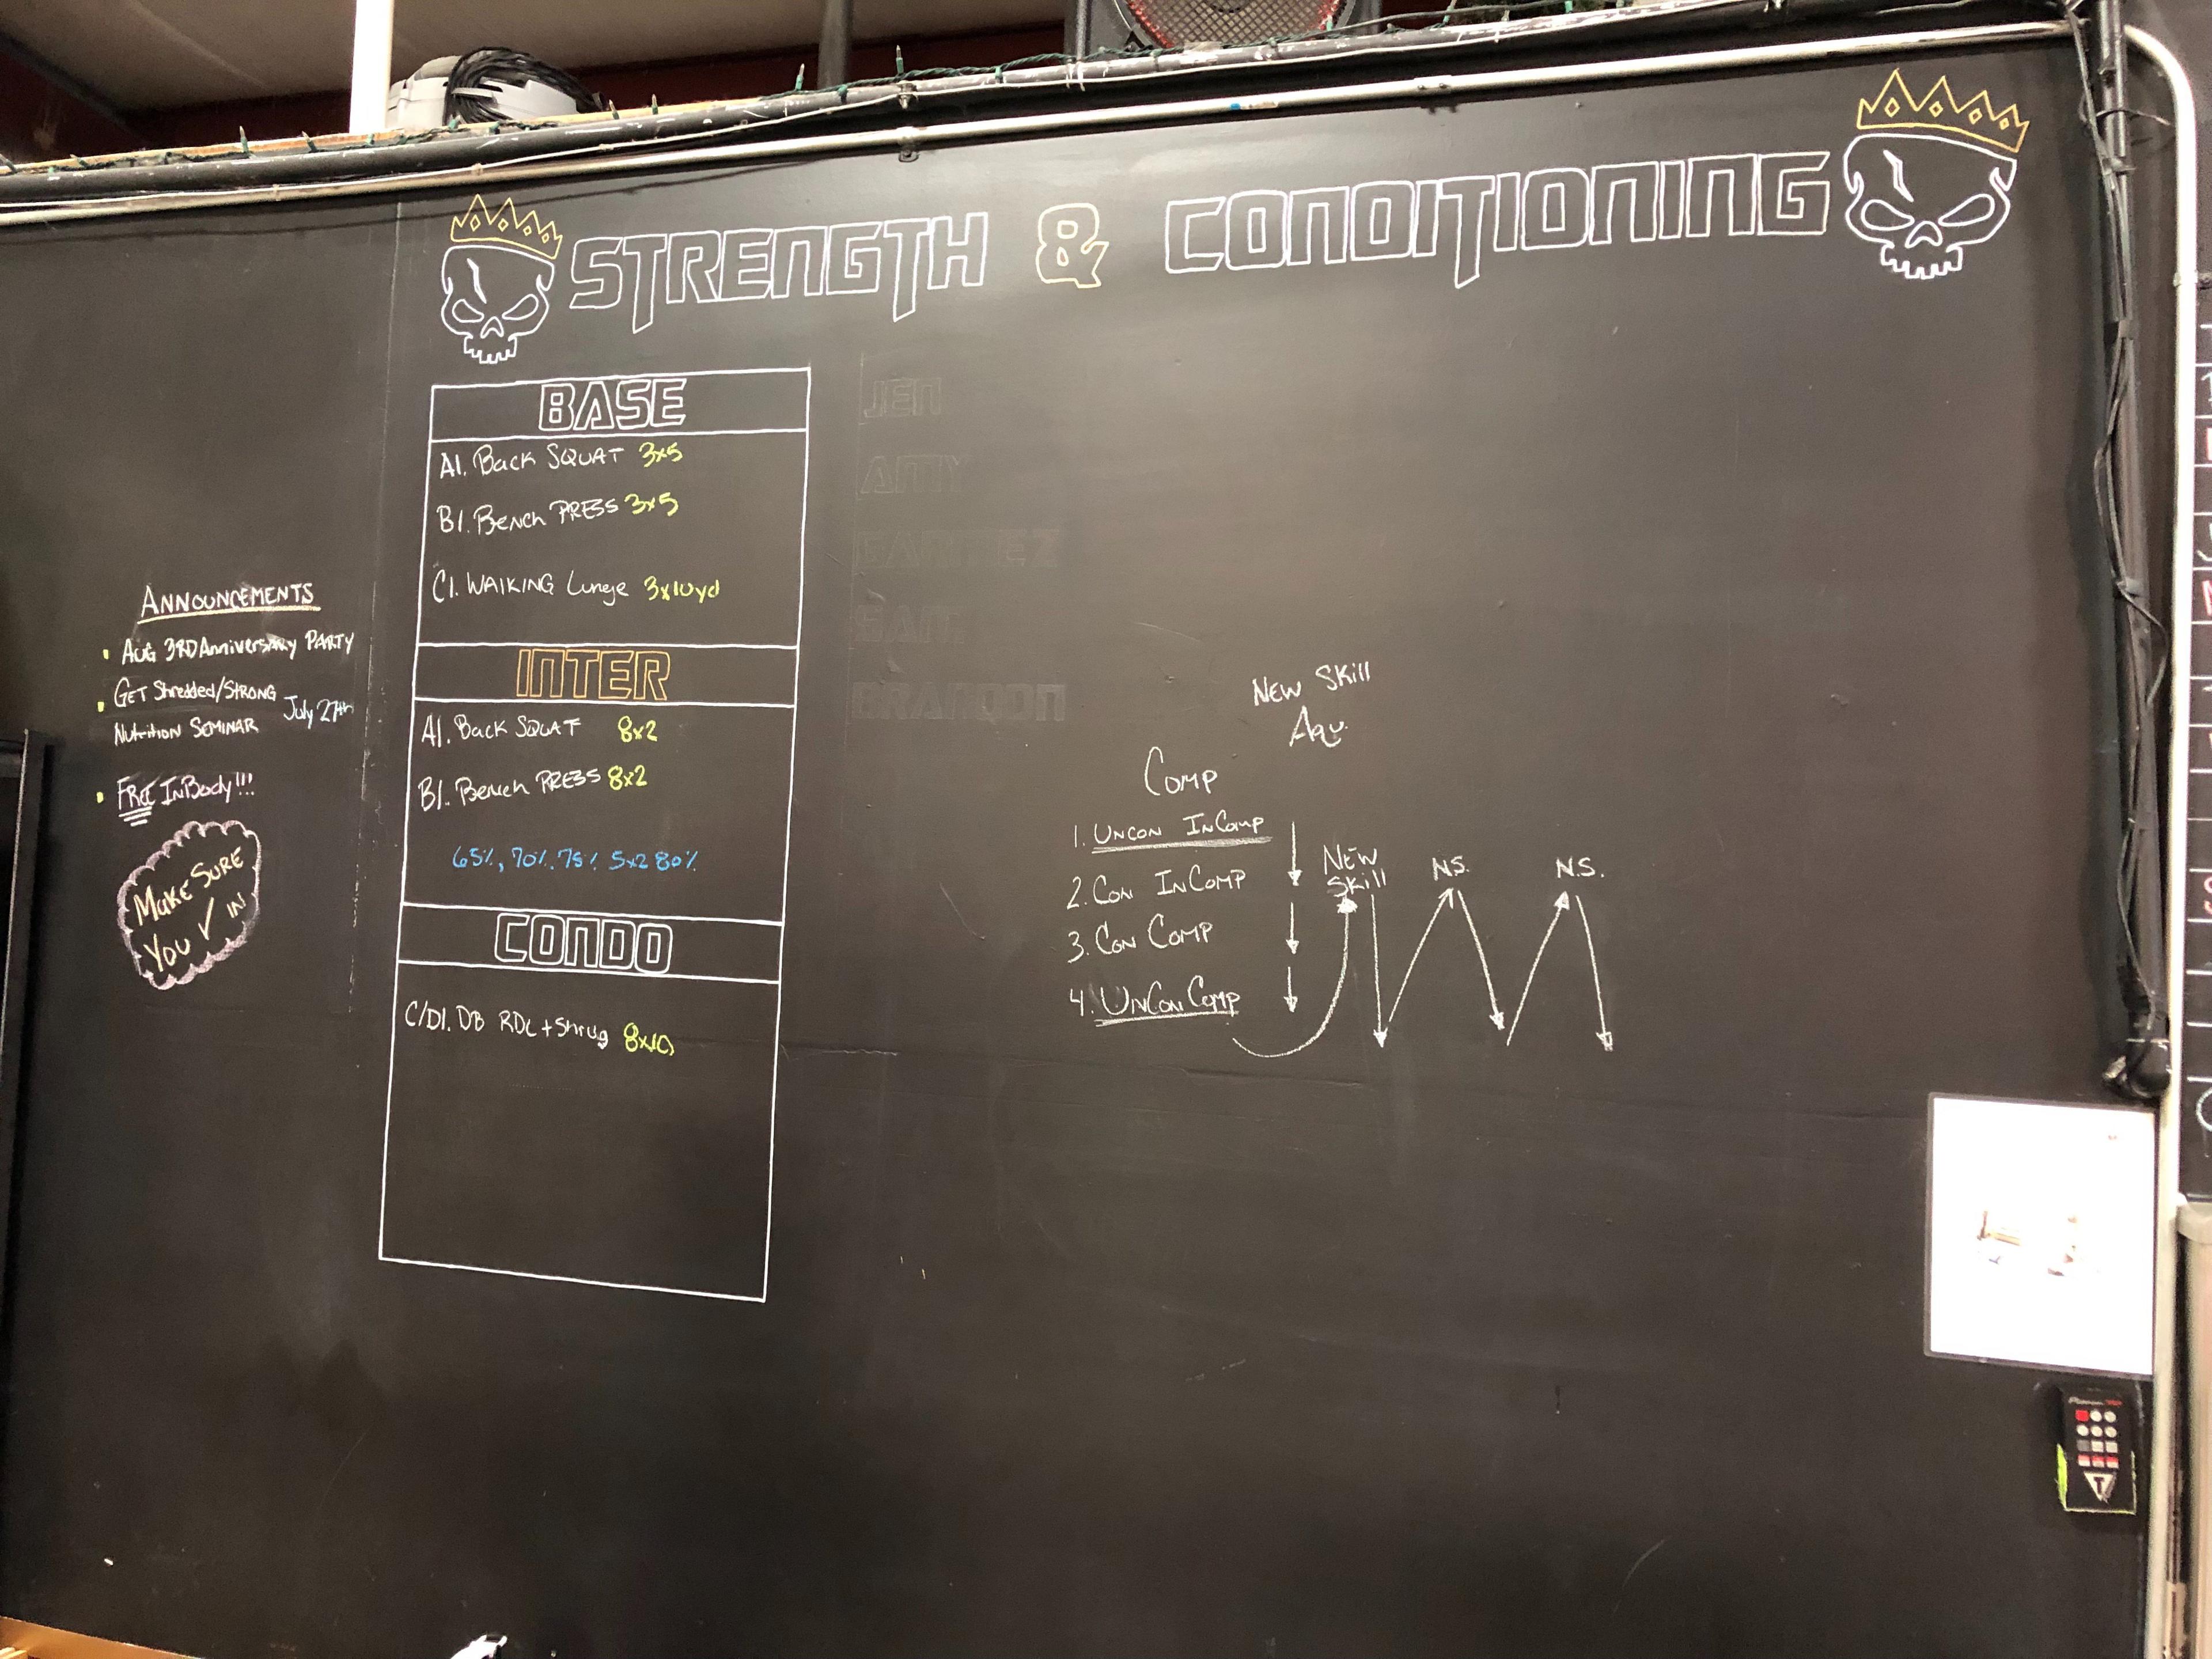 STRENGTH & CONDITIONING
ANNOUNCEMENTS
AUG 3RD Anniversary PARTY
GET Shredded/STRONG
NutritION SEMINAR July 27th
FREE InBody!!!
MAKE SURE
YOU ✓ IN
BASE
A1. BACK SQUAT 3x5
B1. BENCH PRESS 3x5
C1. WALKING Lunge 3x10yd
INTER
A1. BACK SQUAT 8x2
B1. Bench PRESS 8x2
65%, 70%, 75% 5x2 80%
CONDO
C/D1. DB RDL + Shrug 8x10
JEN
AMY
SAM
BRANDON
NEW SKill
Aqu.
COMP
1. UNCON INCOMP
2. CON INCOMP
3. CON COMP
4. UNCON COMP
NEW
SKill
N.S.
N.S.